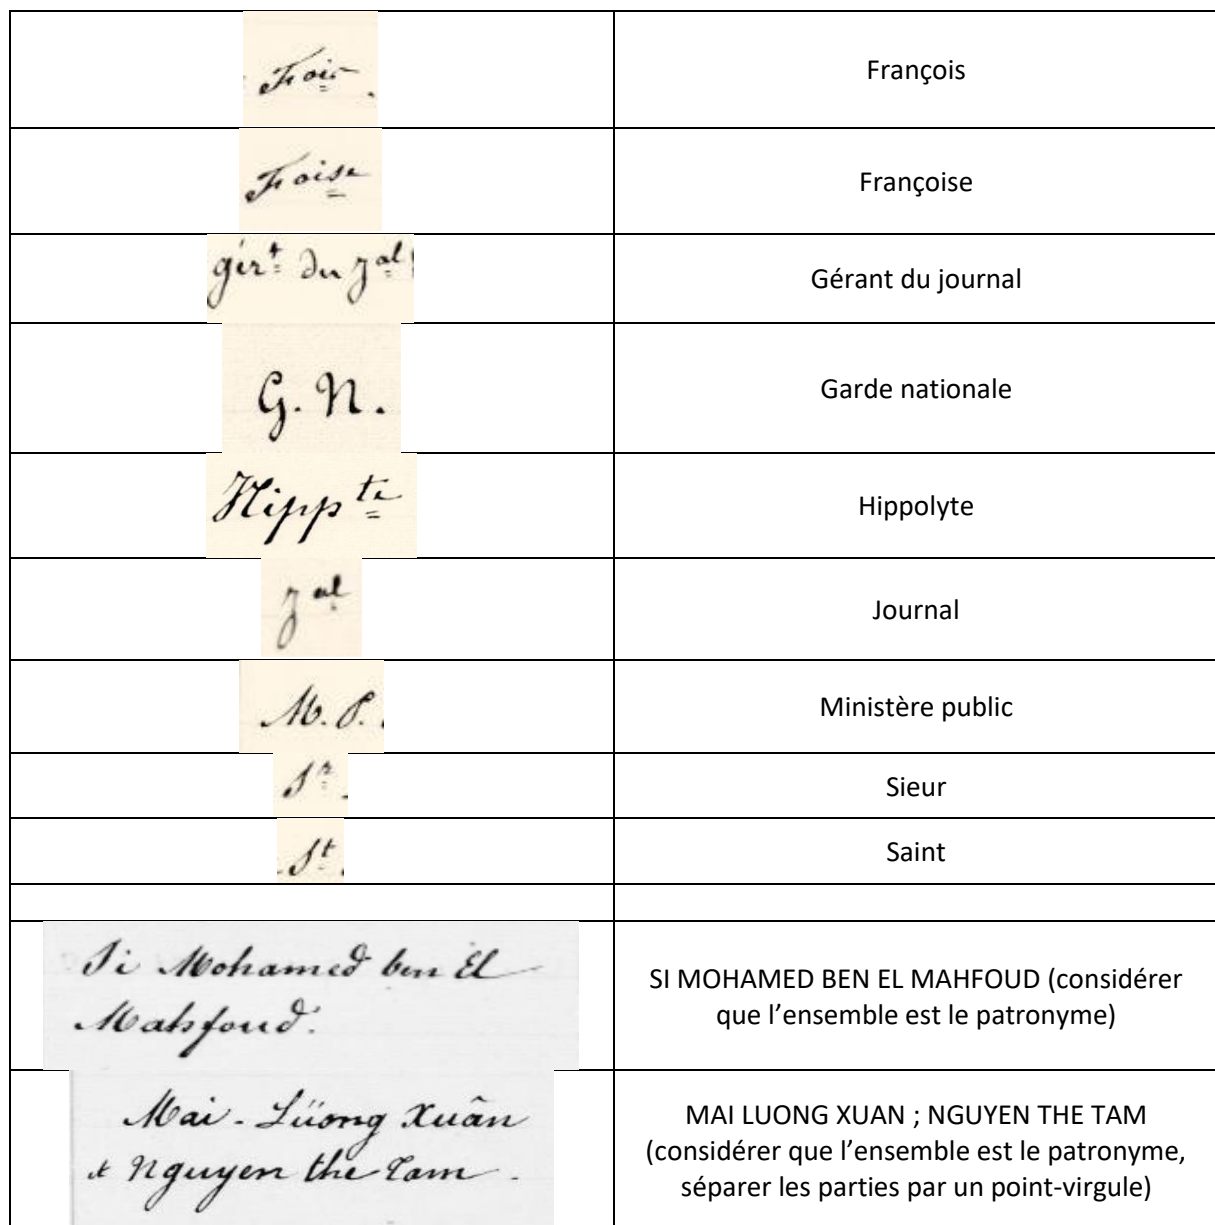 Fois
François
Foise
Françoise
gért du jal
Gérant du journal
G. N.
Garde nationale
Hippte
Hippolyte
jal
Journal
M. P.
Ministère public
Sr
Sieur
St
Saint
Si Mohamed ben El
Mahfoud.
SI MOHAMED BEN EL MAHFOUD (considérer
que l’ensemble est le patronyme)
Mai - Lüong Xuân
& Nguyen the Tam.
MAI LUONG XUAN ; NGUYEN THE TAM
(considérer que l’ensemble est le patronyme,
séparer les parties par un point-virgule)